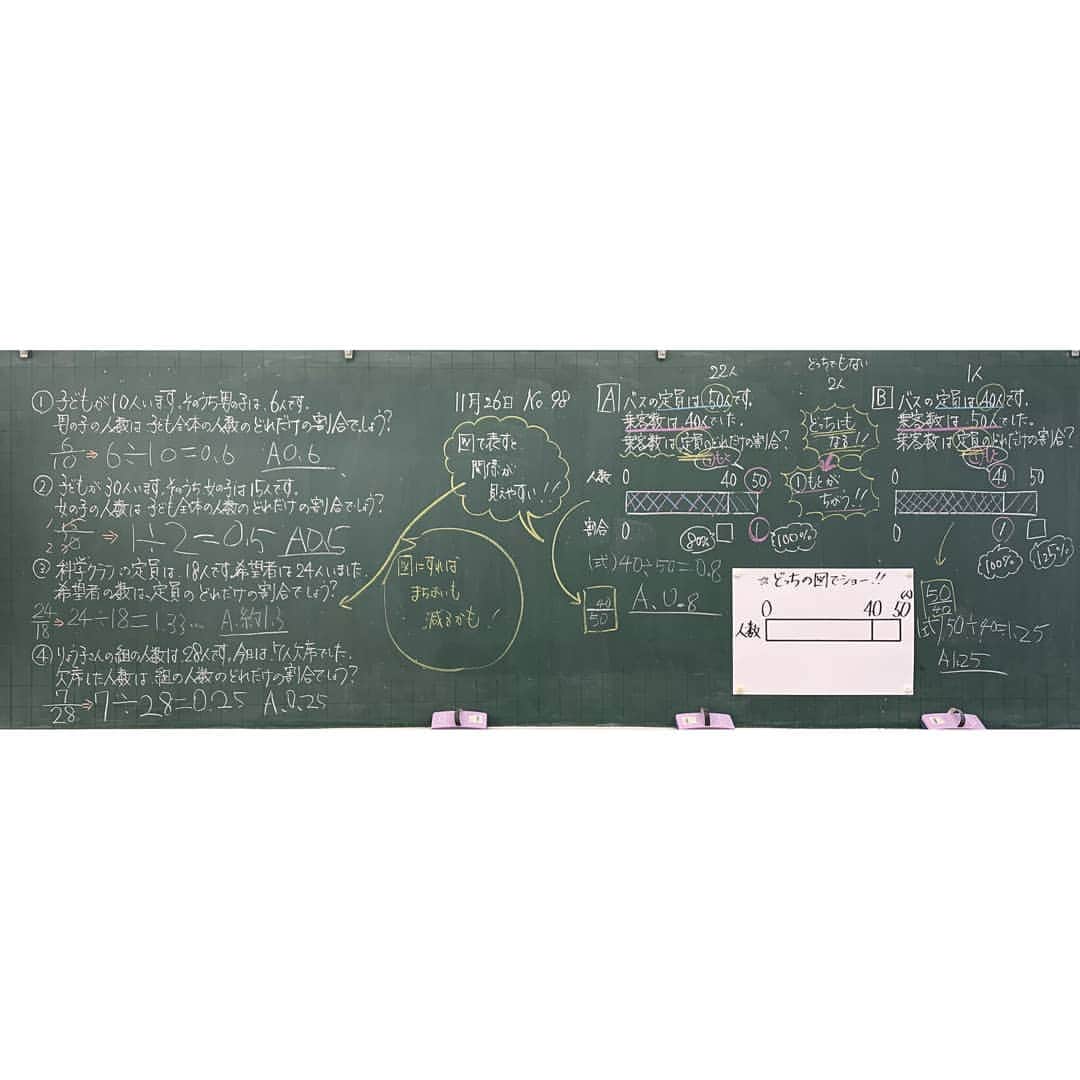 ① 子どもが10人います。そのうち男の子は、6人です。
男の子の人数は子ども全体の人数のどれだけの割合でしょう?
6/10 → 6÷10=0.6 A0.6
② 子どもが30人います。そのうち女の子は15人です。
女の子の人数は子ども全体の人数のどれだけの割合でしょう?
1 15
2 30 → 1÷2=0.5 A0.5
③ 科学クラブの定員は、18人です。希望者は24人いました。
希望者の数は、定員のどれだけの割合でしょう?
24/18 → 24÷18=1.33… A.約1.3
④ りょう子さんの組の人数は、28人です。今日は、7人欠席でした。
欠席した人数は、組の人数のどれだけの割合でしょう?
7/28 → 7÷28=0.25 A.0.25
11月26日 No.98
図で表すと
関係が
見えやすい!!
図にすれば
まちがいも
減るかも!
22人
A バスの定員は50人です。
乗客数は40人でした。
乗客数は定員のどれだけの割合?
もと
人数 0 40 50
割合 0 □ 1
80% 100%
(式)40÷50=0.8
40/50
A.0.8
どっちでもない
2人
どっちにも
なる!!
①もとが
ちがう!!
☆どっちの図でショー!!
0 40 50
人数
1人
B バスの定員は40人です。
乗客数は50人でした。
乗客数は定員のどれだけの割合?
もと
0 40 50
0 1 □
100% 125%
50/40
(式)50÷40=1.25
A1.25